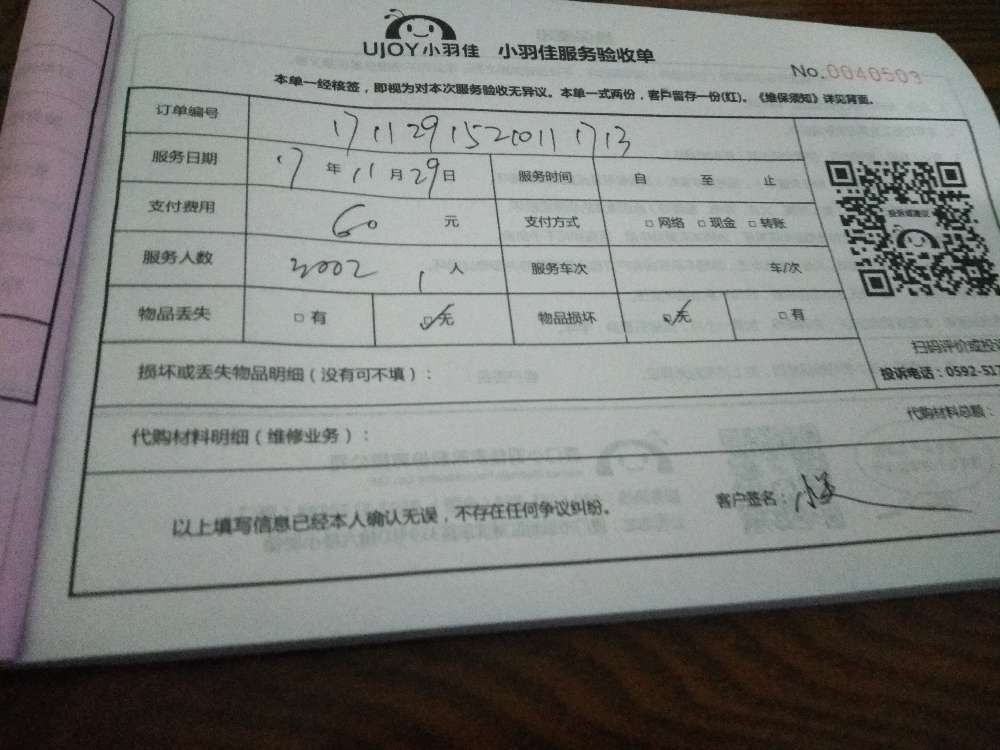 UJOY小羽佳 小羽佳服务验收单
No.0040503
本单一经核签，即视为对本次服务验收无异议。本单一式两份，客户留存一份(红)。《维保须知》详见背面。
订单编号 171129152011713
服务日期 17年11月29日 服务时间 自 至 止
支付费用 60元 支付方式 □网络 □现金 □转账
服务人数 2002 1人 服务车次 车/次
物品丢失 □有 ☑无 物品损坏 ☑无 □有
投诉或建议
扫码评价或投
损坏或丢失物品明细（没有可不填）：
投诉电话：0592-517
代购材料明细（维修业务）：
代购材料总额：
以上填写信息已经本人确认无误，不存在任何争议纠纷。
客户签名：